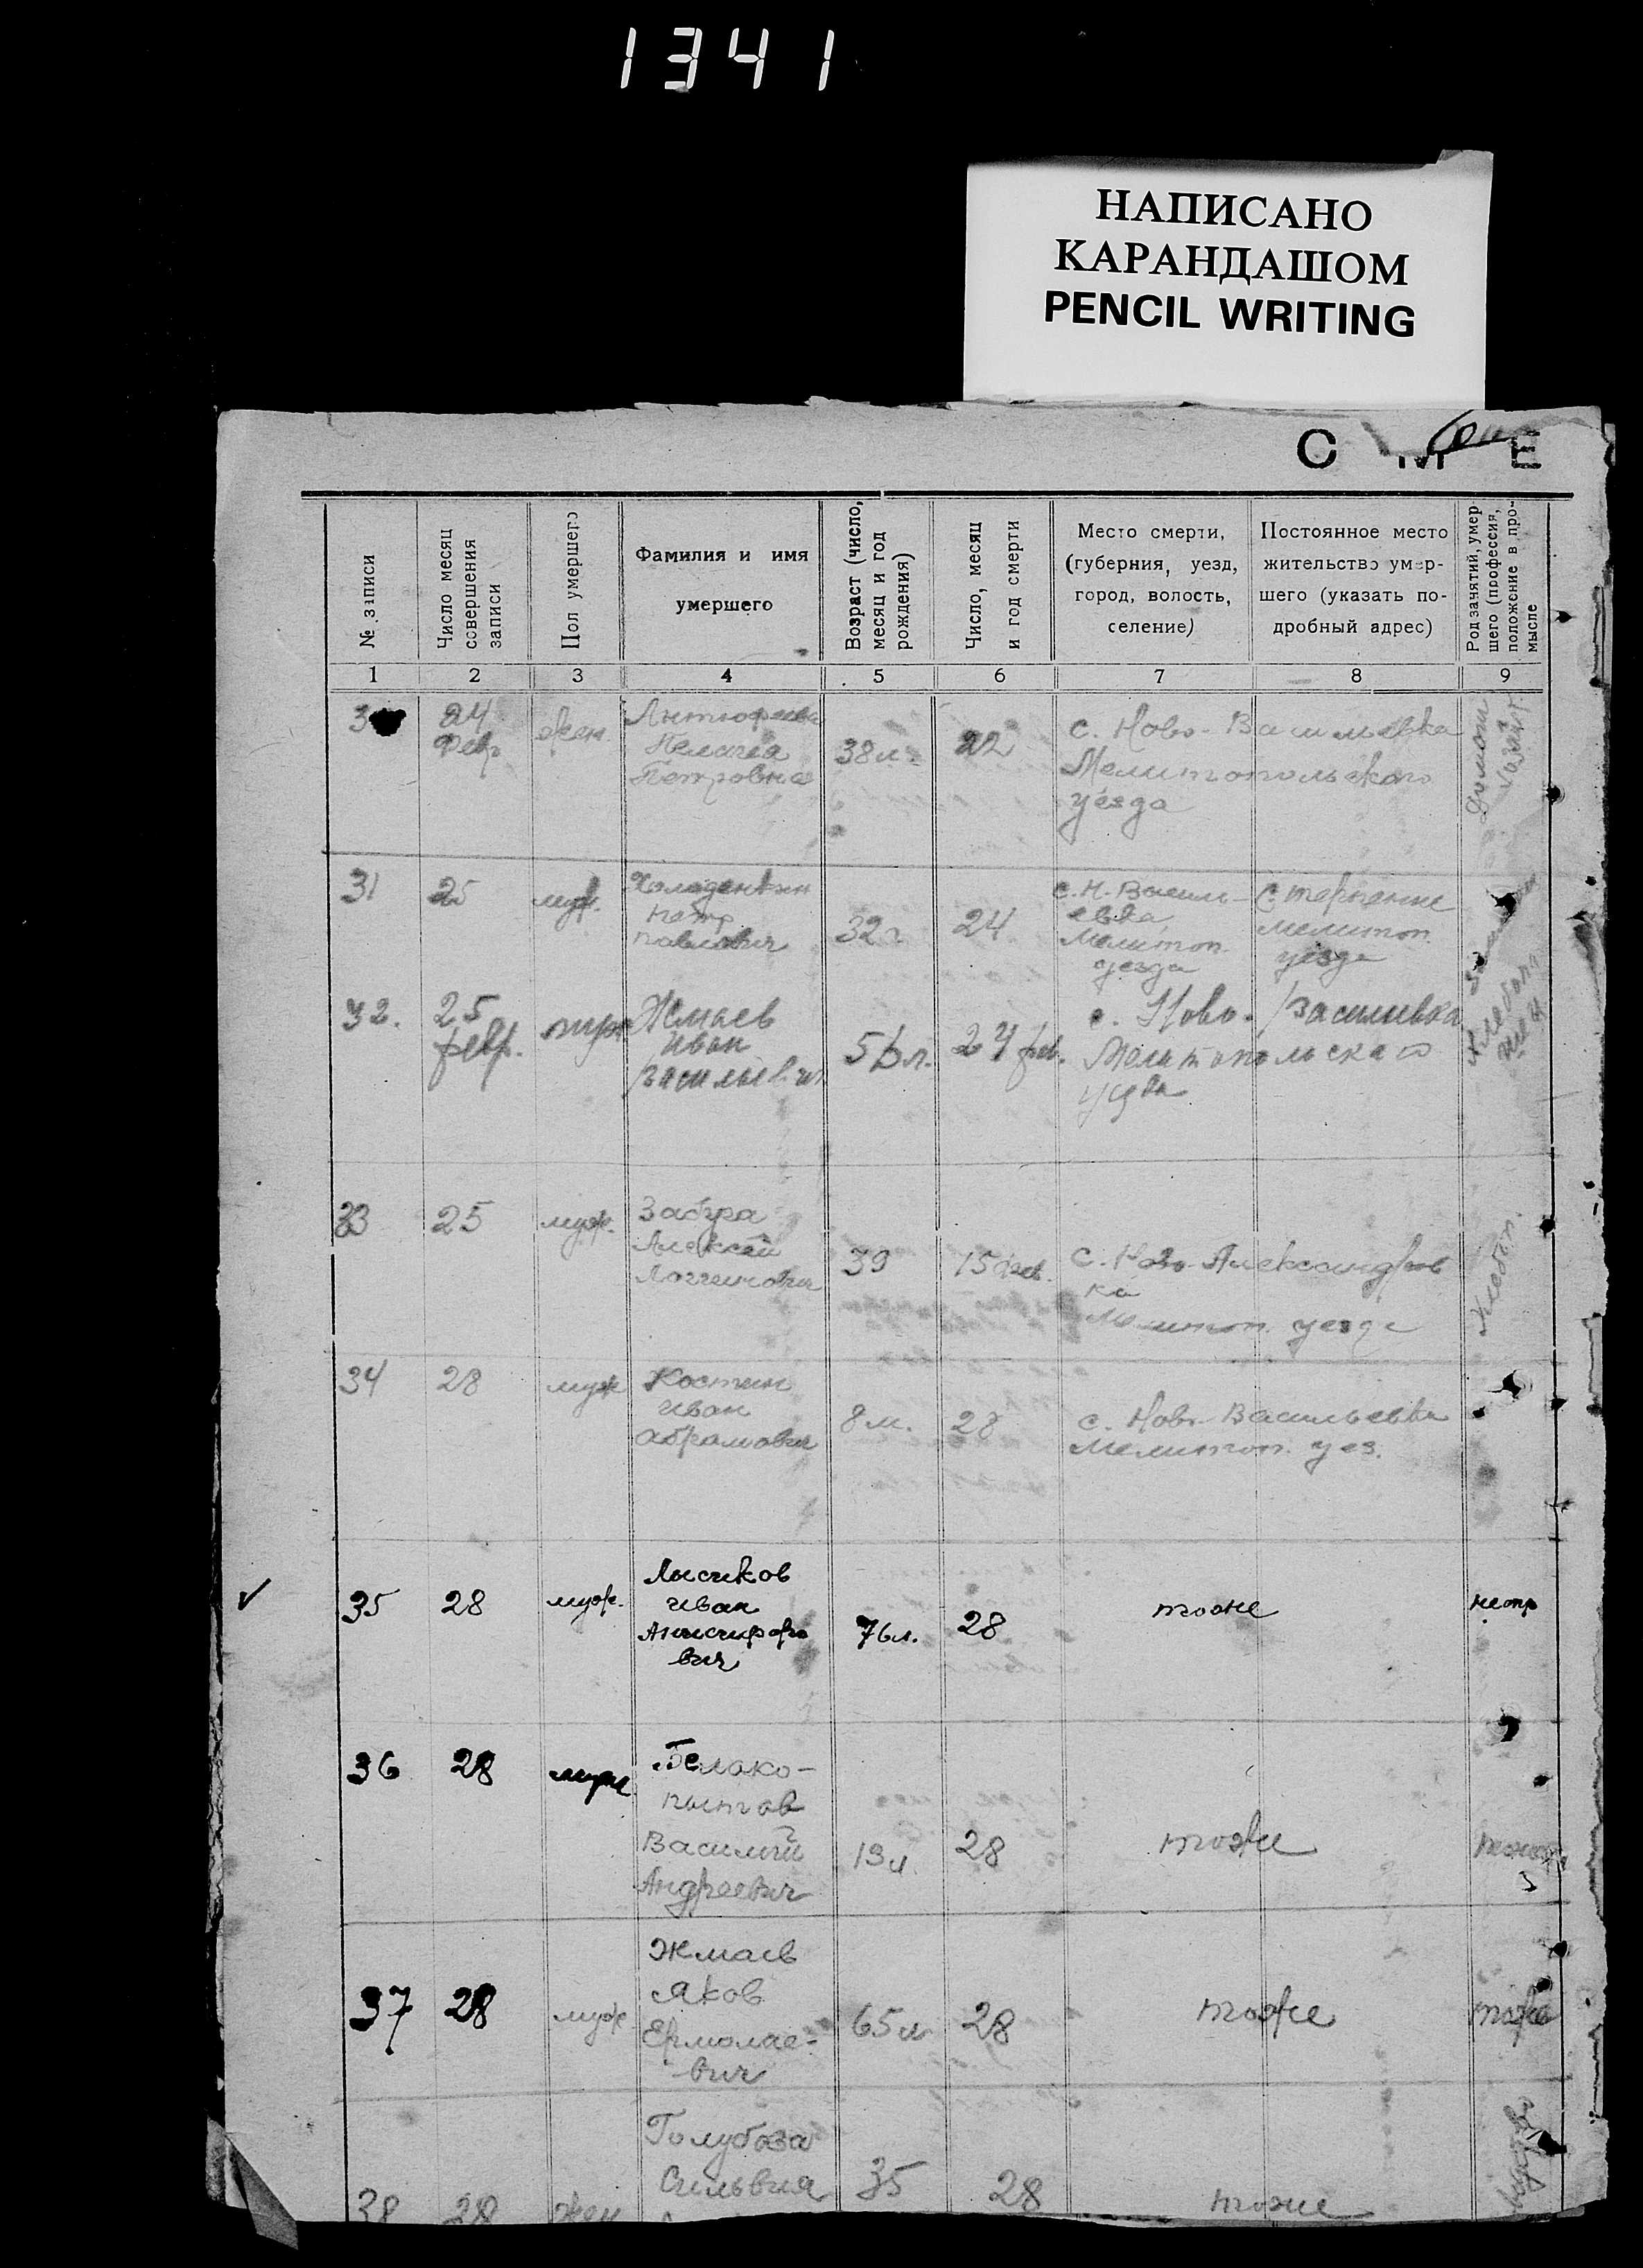 1341
НАПИСАНО
КАРАНДАШОМ
PENCIL WRITING
С М Е
№ записи
Число месяц совершения записи
Пол умершего
Фамилия и имя
умершего
Возраст (число, месяц и год рождения)
Число, месяц и год смерти
Место смерти, (губерния, уезд, город, волость, селение)
Постоянное место жительство умершего (указать подробный адрес)
Род занятий, умершего (профессия, положение в промысле
1 2 3 4 5 6 7 8 9
24 февр жен.
Пелагея
Петровна
38л. 22
с. Ново-Васильевка
Мелитопольского
уезда
31 25 муж.
Петр
Павлович
32г 24
с. Н. Василь-
евка
мелитоп.
уезда
с терпение
мелитоп
уезда
32. 25 февр. муж
Жмаев
Иван
Васильевич
24 фев.
с. Ново-Василивка
Мелитопольскаго
уезда
33 25 муж.
Забура
Алексей
Логгинович
39 15 фев.
с. Ново-Александров
ка
уезда
Хлебоп.
34 28 муж
Костин
Иван
Абрамович
8м. 28
с. Ново-Васильевка
мелитоп. уез.
35 28 муж.
Лысиков
Иван
Анисифоро
вич
76л. 28 тоже
36 28 муж
Белако-
пытов
Василий
Андреевич
28 тоже
37 28 муж
Жмаев
Яков
Ермолае-
вич
65л 28 тоже тоже
38 28 жен
Голубова
Сильвия
35 28 тоже